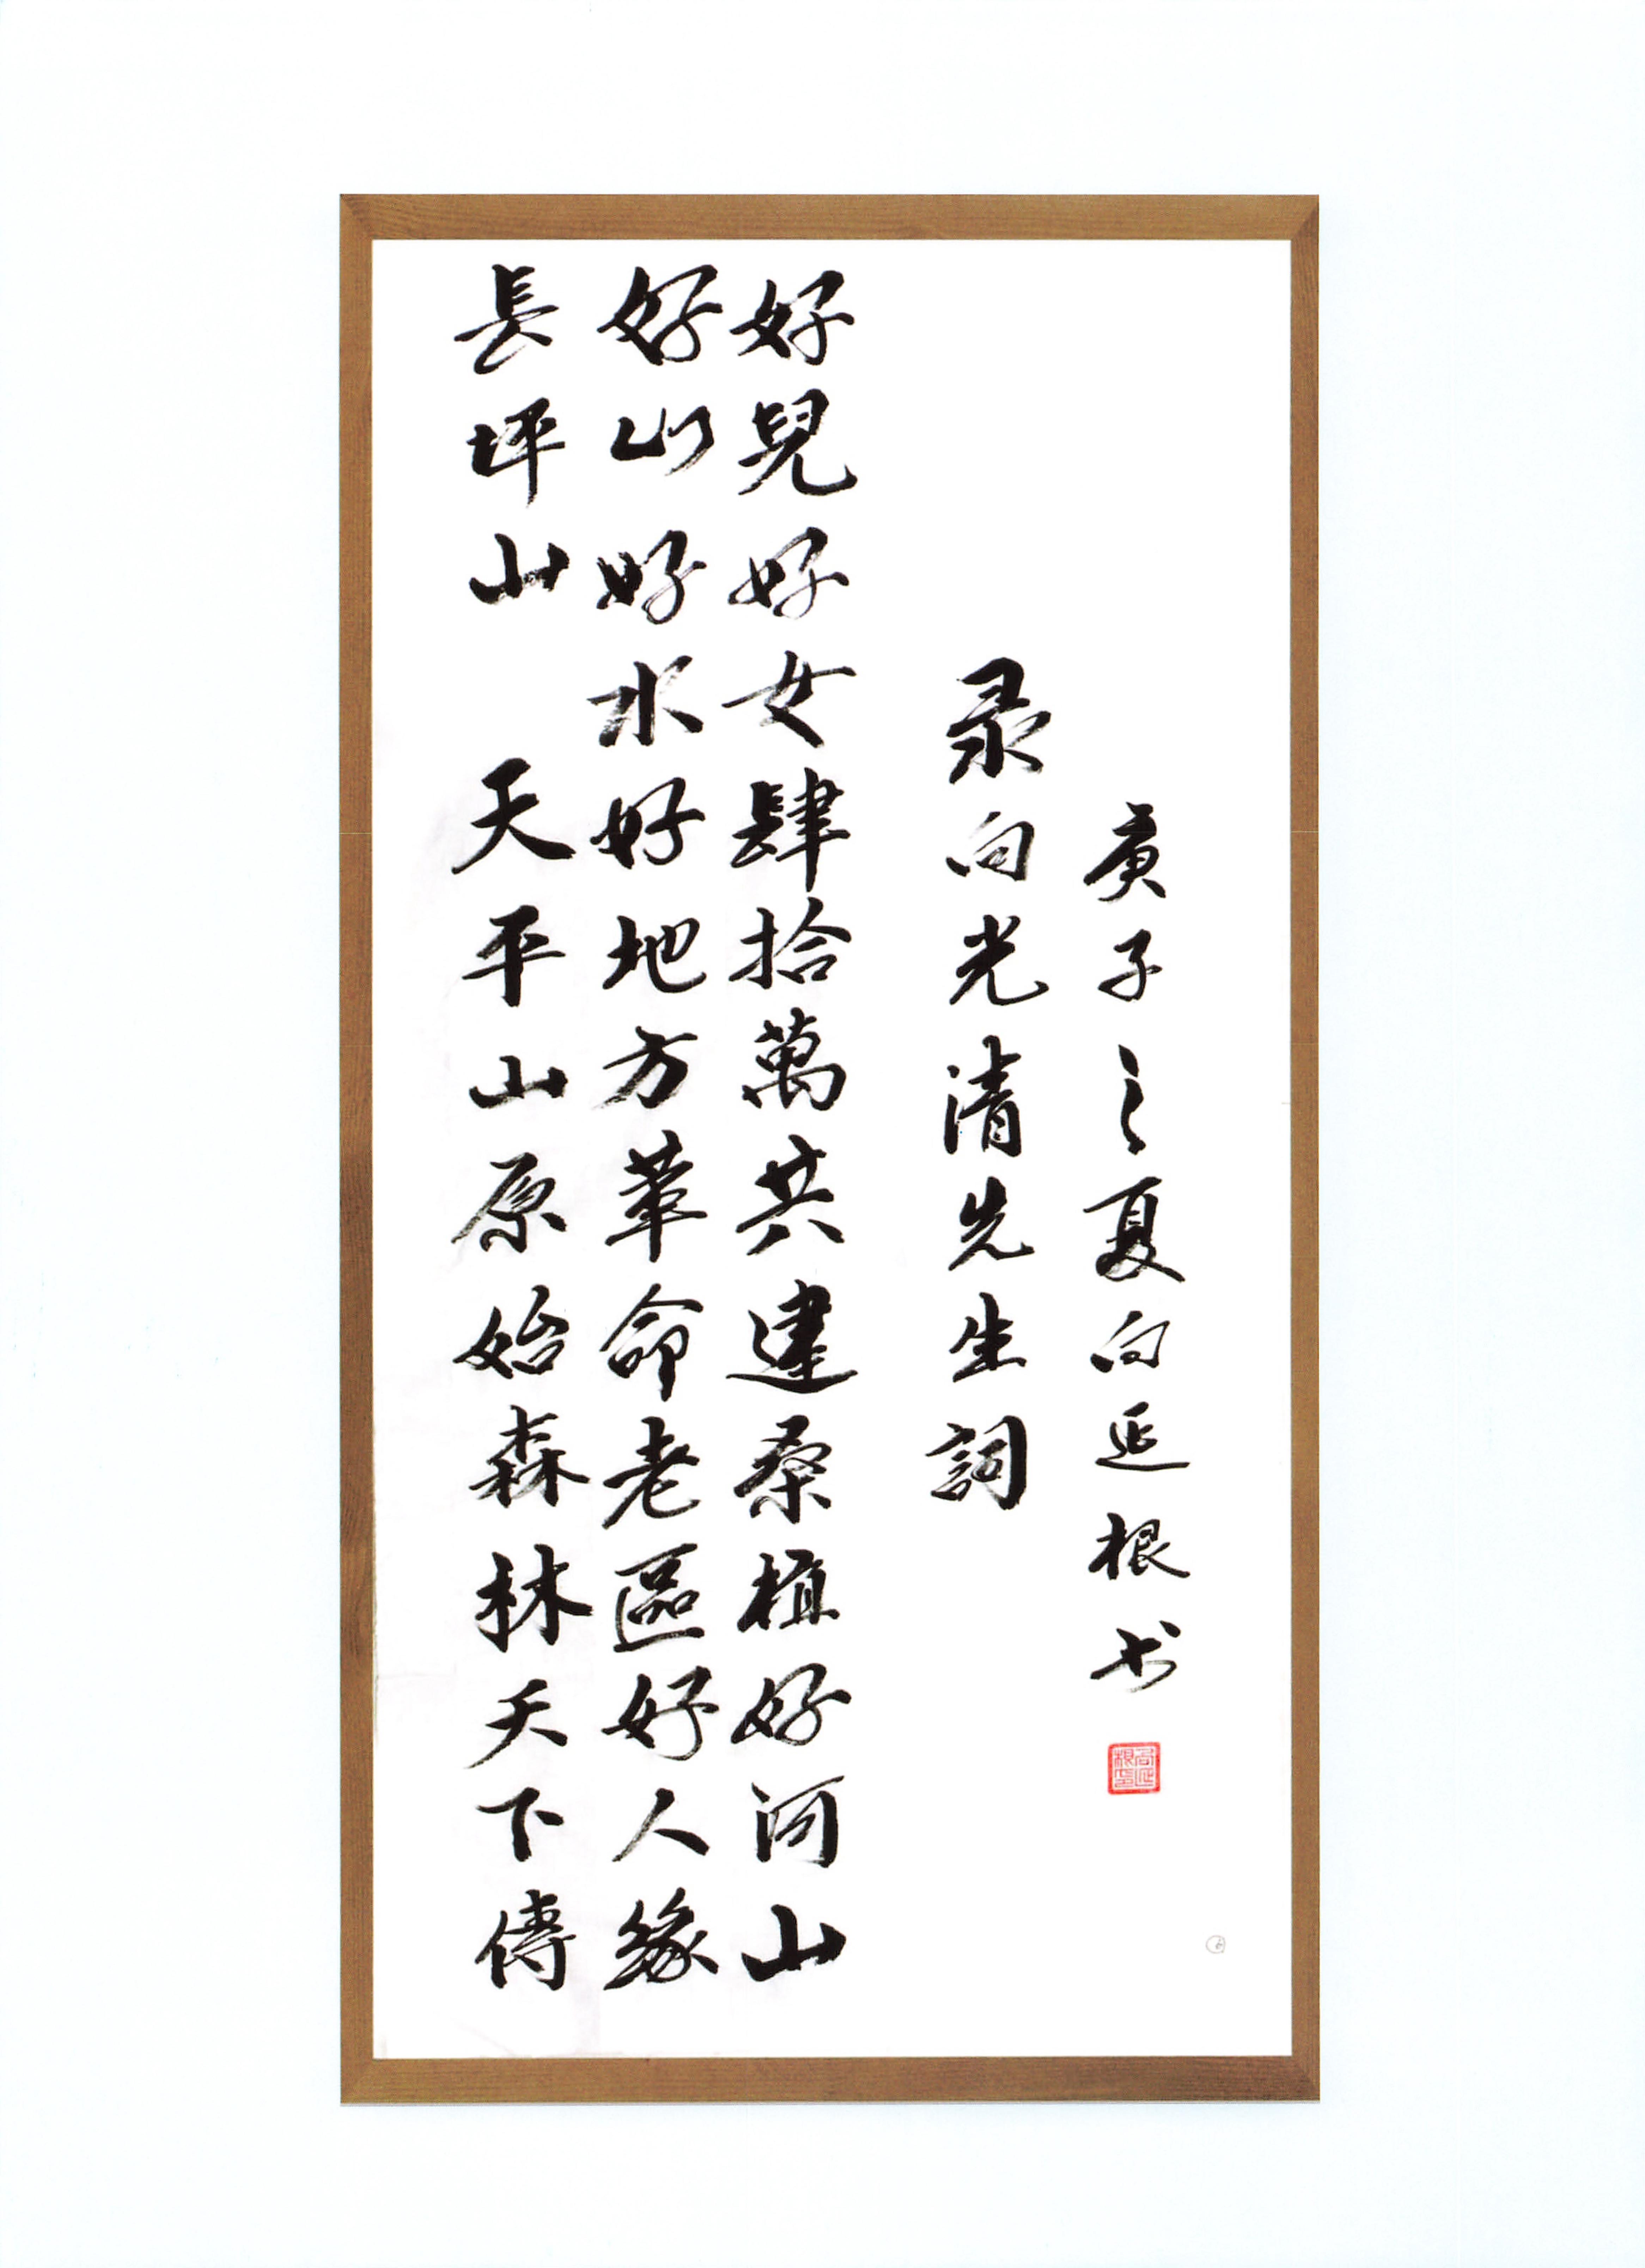 長坪山 天平山原始森林天下傳
好山好水好地方革命老區好人緣
好兒好女肆拾萬共建桑植好河山
录向光清先生詞
庚子之夏向延根书
向延根印